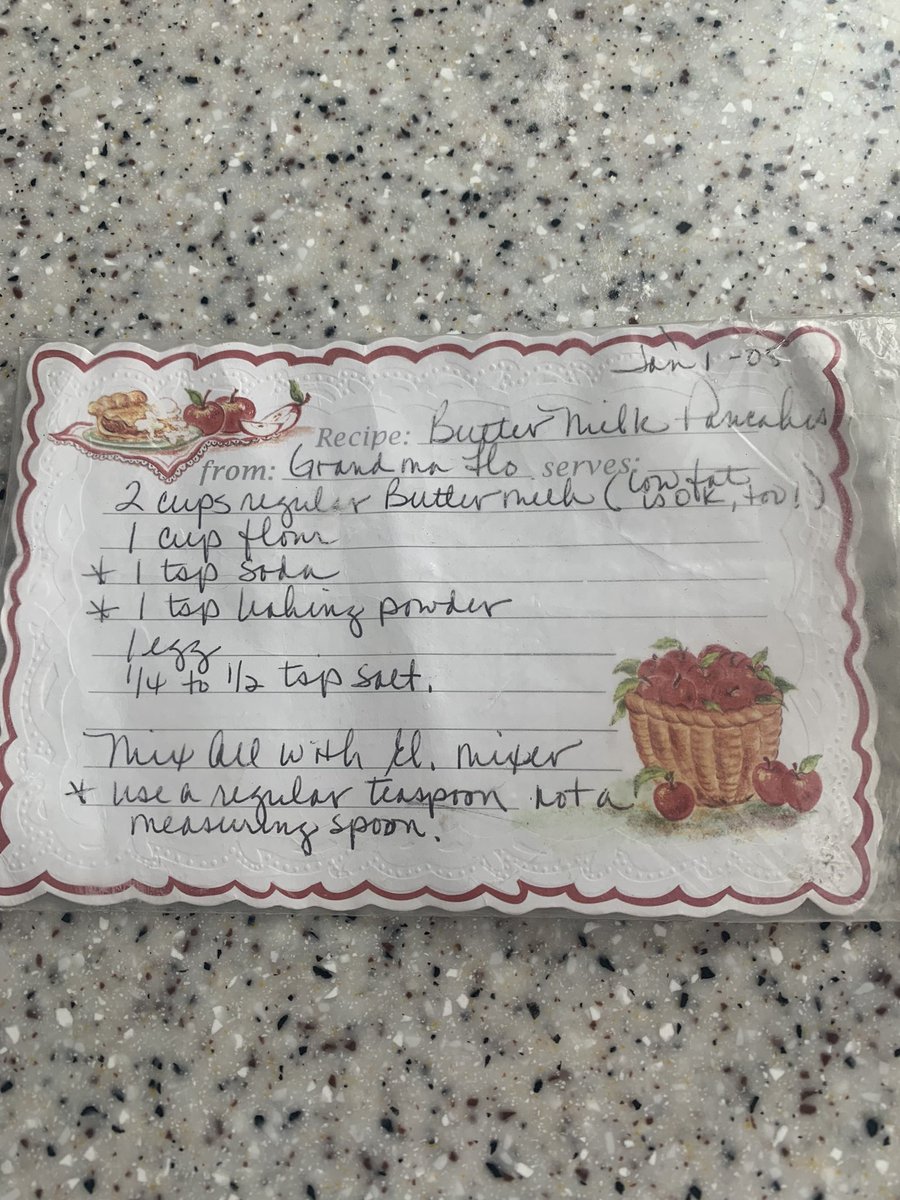 Jan 1 - 05
Recipe: Butter Milk Pancakes
from: Grandma Flo serves:
2 cups regular Buttermilk (low fat is OK, too!)
1 cup flour
* 1 tsp soda
* 1 tsp baking powder
1 egg
1/4 to 1/2 tsp salt.
Mix all with El. mixer
* use a regular teaspoon not a
measuring spoon.